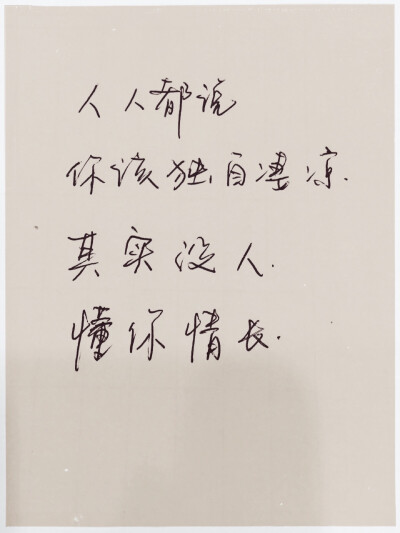 人人都说
你该独自凄凉.
其实没人.
懂你情长.